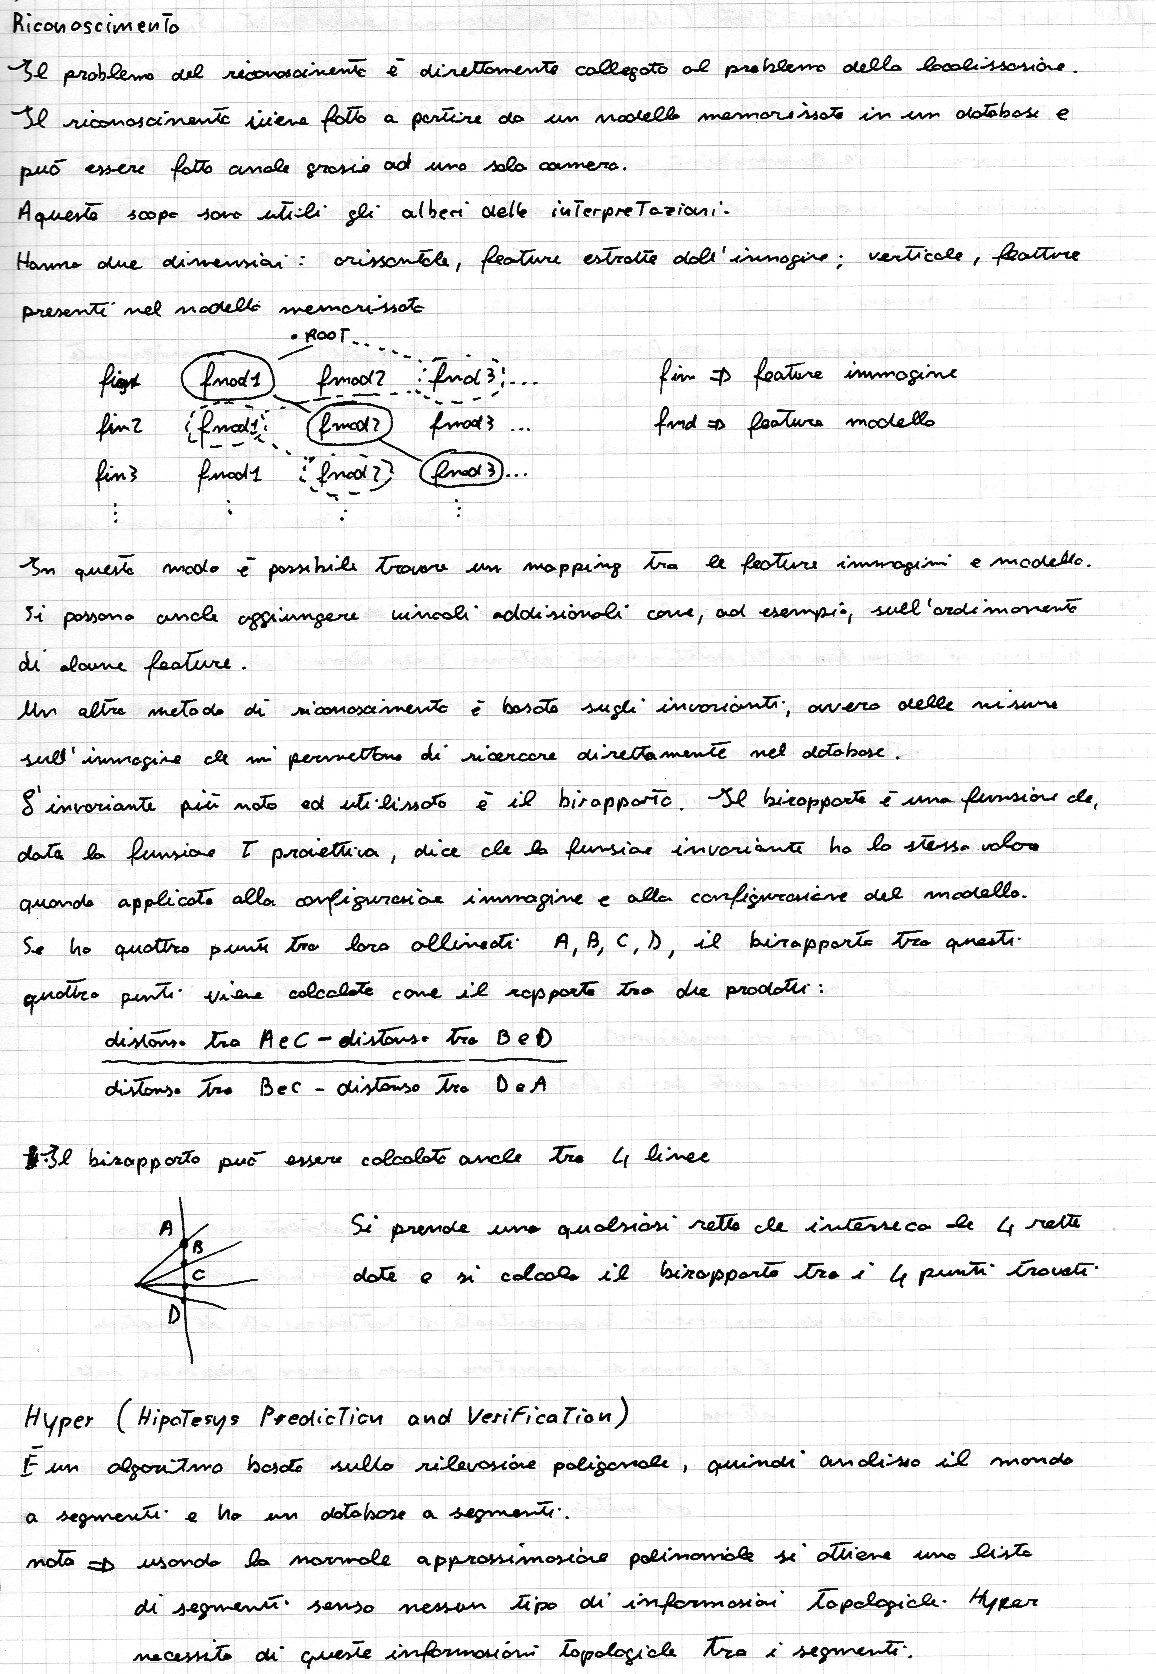 Riconoscimento
Il problema del riconoscimento è direttamente collegato al problema della localizzazione.
Il riconoscimento viene fatto a partire da un modello memorizzato in un database e
può essere fatto anche grazie ad una sola camera.
A questo scopo sono utili gli alberi delle interpretazioni.
Hanno due dimensioni: orizzontale, feature estratte dall'immagine; verticale, feature
presenti nel modello memorizzato
• ROOT
fim1 fmod1 fmod2 fmd3 ...
fim2 fmod1 fmod2 fmod3 ...
fim3 fmod1 fmod2 fmod3 ...
fim ⇒ feature immagine
fmd ⇒ feature modello
In questo modo è possibile trovare un mapping tra le feature immagini e modello.
Si possono anche aggiungere vincoli addizionali come, ad esempio, sull'ordinamento
di alcune feature.
Un altro metodo di riconoscimento è basato sugli invarianti, ovvero delle misure
sull'immagine che mi permettono di ricercare direttamente nel database.
L'invariante più noto ed utilizzato è il birapporto. Il birapporto è una funzione che,
data la funzione T proiettiva, dice che la funzione invariante ha lo stesso valore
quando applicata alla configurazione immagine e alla configurazione del modello.
Se ho quattro punti tra loro allineati A, B, C, D, il birapporto tra questi
quattro punti viene calcolato come il rapporto tra due prodotti:
distanza tra A e C - distanza tra B e D
distanza tra B e C - distanza tra D e A
Il birapporto può essere calcolato anche tra 4 linee
A
B
C
D
Si prende una qualsiasi retta che interseca le 4 rette
date e si calcola il birapporto tra i 4 punti trovati
Hyper (Hipotesys Prediction and Verification)
È un algoritmo basato sulla rilevazione poligonale, quindi analizza il mondo
a segmenti e ha un database a segmenti.
nota ⇒ usando la normale approssimazione polinomiale si ottiene una lista
di segmenti senza nessun tipo di informazioni topologiche. Hyper
necessita di queste informazioni topologiche tra i segmenti.